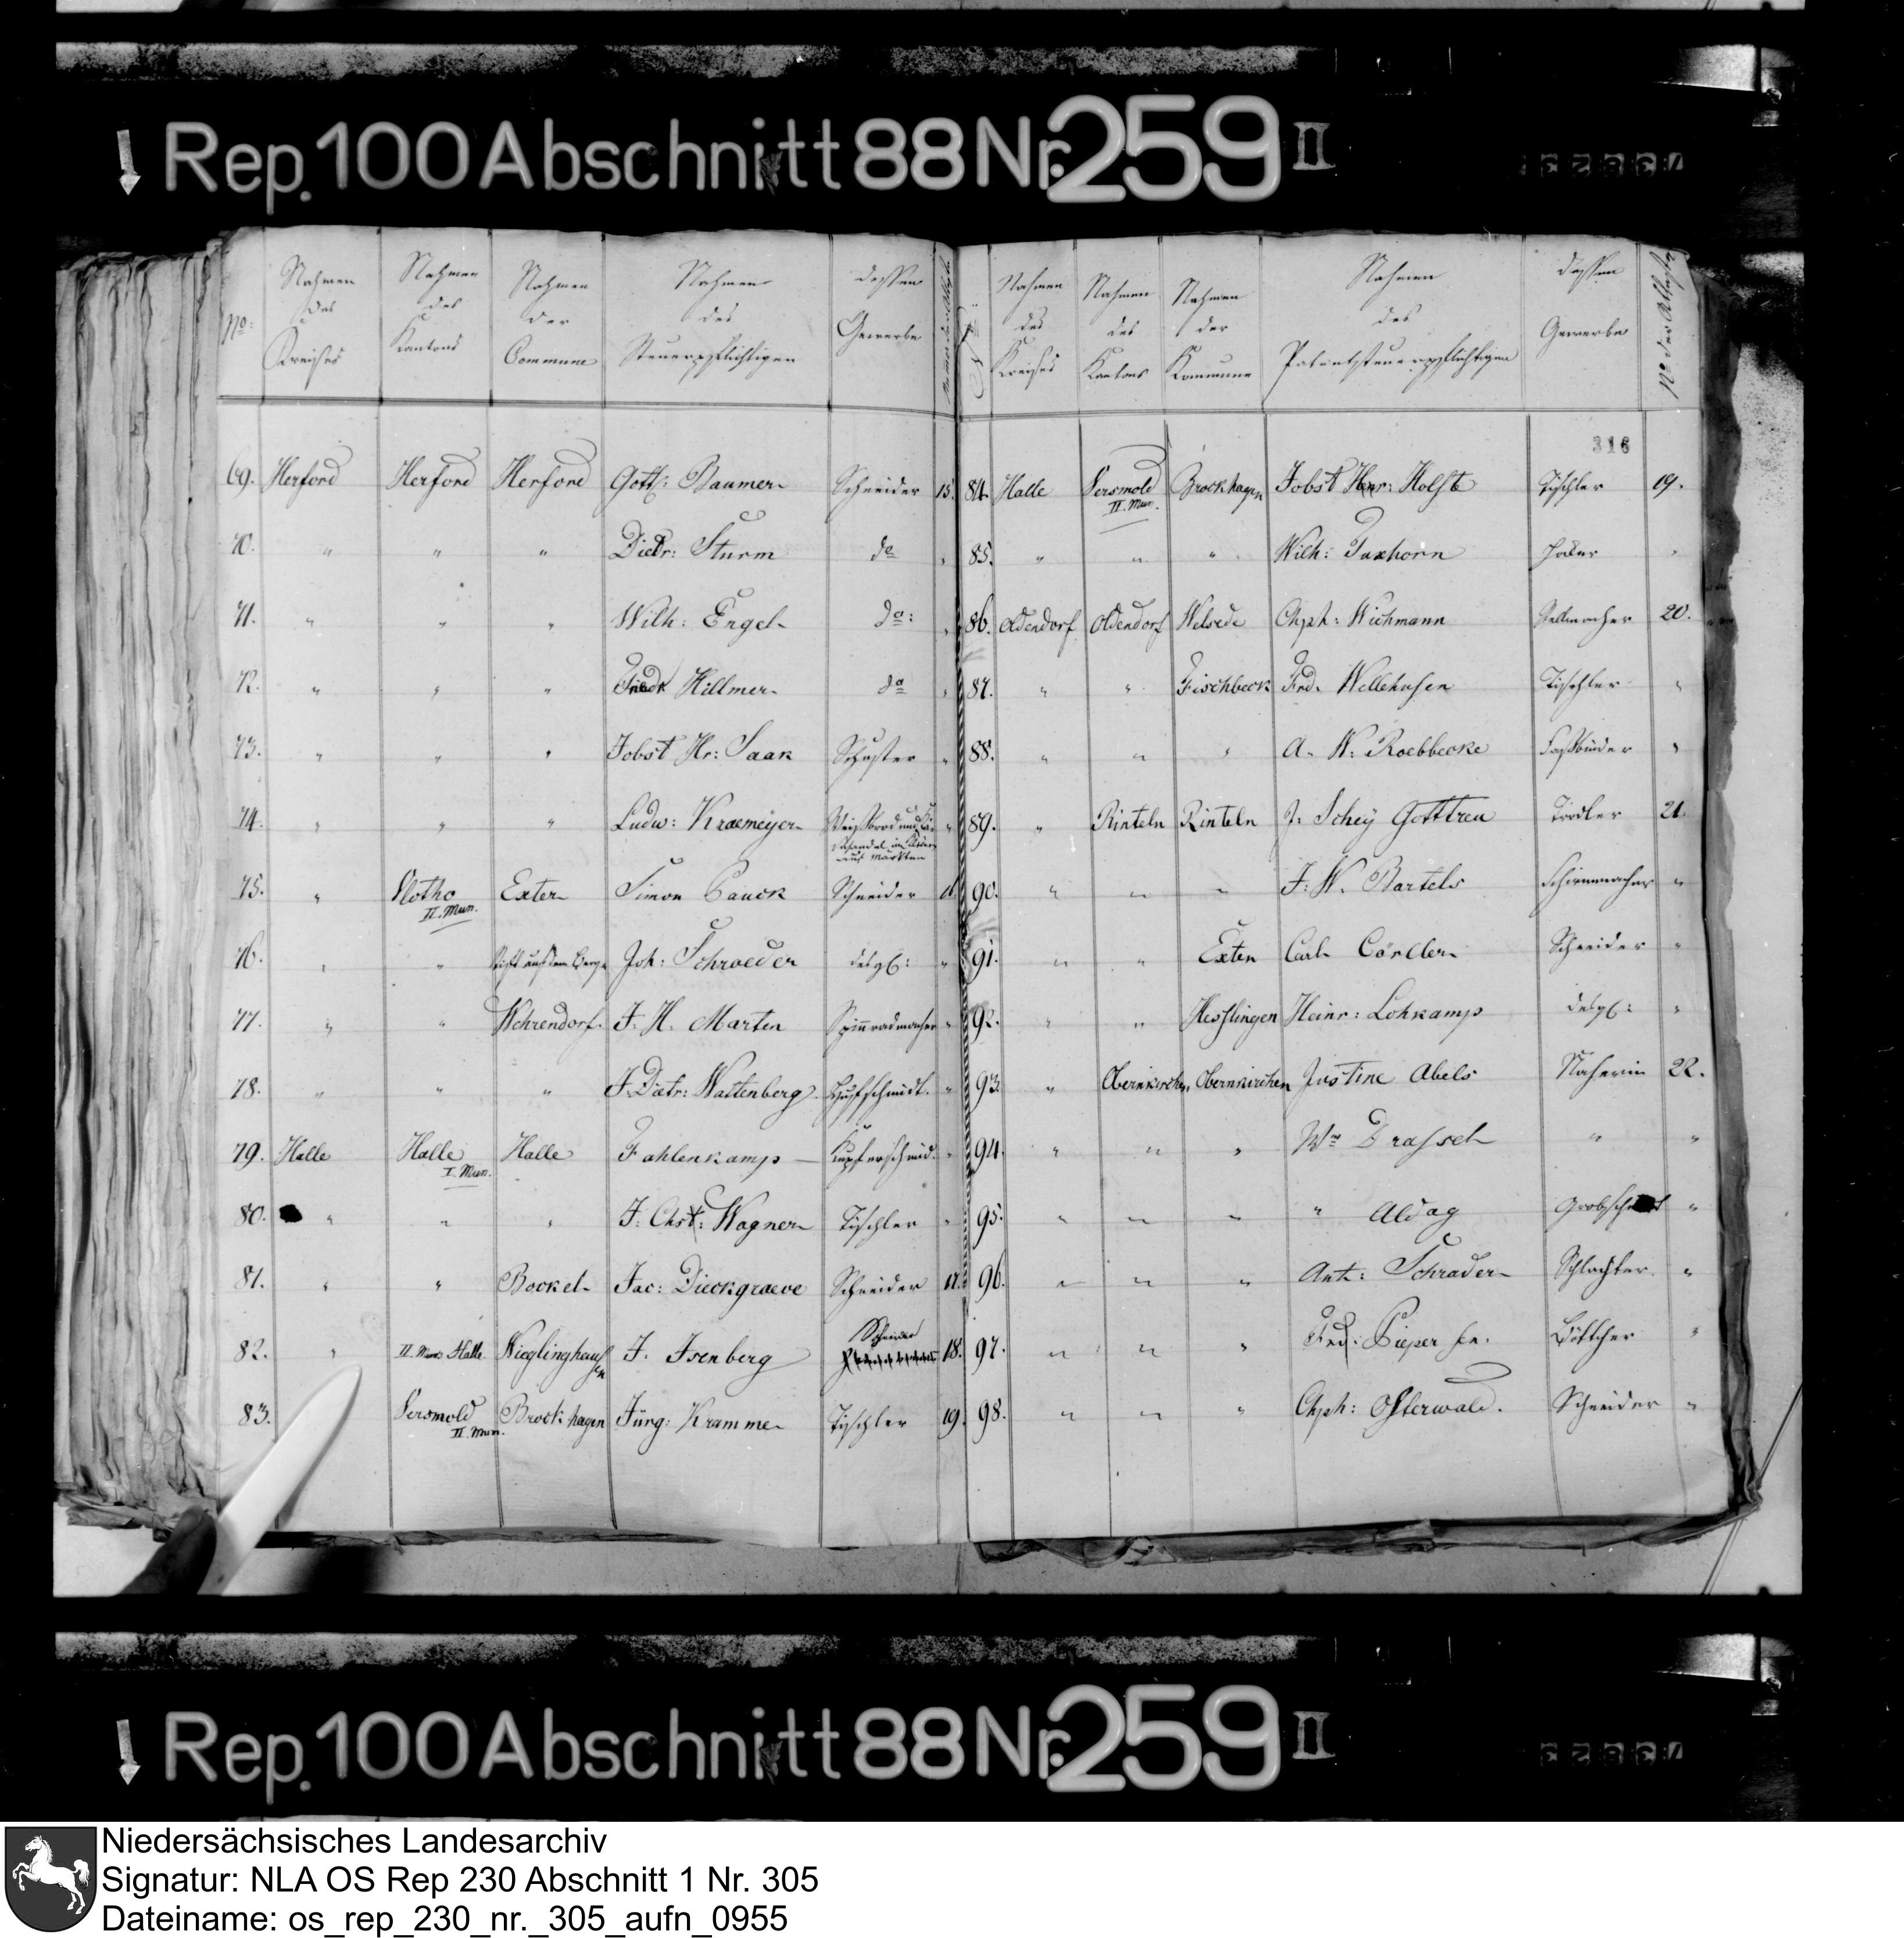 Rep. 100 Abschnitt 88 Nr. 259 II
No: Nahmen des Kreises Nahmen des Kantons Nahmen der Commune Nahmen des Steuerpflichtigen dessen Gewerbe
Nahmen des Kreises Nahmen des Kantons Nahmen der Kommune Nahmen des Patentsteuerpflichtigen dessen Gewerbe No der Atteste
316
69. Herford Herford Herford Gottf: Baumer Schneider 15.
70. " " " Dietr: Sturm do "
71. " " " Wilh: Engel do: "
72. " " " Friedr Hillmer do "
73. " " " Jobst Hr: Saak Schuster "
74. " " " Ludw: Kraemeyer Weißbrod und
auf Märkten
75. " Vlotho II. Mun. Exter Simon Schneider
76. " " Stift auf dem Berge Joh: Schroeder desgl: "
77. " " Wehrendorf. F. H. Marten Spinnradmacher "
78. " " " F. Dietr: Wattenberg Hufschmidt. "
79. Halle Halle I. Mun. Halle Fahlenkamp Kupferschmid. "
80. " " " F. Chst: Wagner Tischler "
81. " " Bockel Jac: Dieckgraeve Schneider 17.
82. " II. Mun: Halle Wieglinghausen F. Isenberg Schneider 18.
83. Versmold II. Mun. Brockhagen Jürg: Kramme Tischler 19.
84. Halle Versmold II. Mun. Brockhagen Jobst Henr: Holste Tischler 19.
85. " " " Wilh: Taxhorn "
86. Oldendorf Oldendorf Welsede Chph: Wichmann Radmacher 20.
87. " " Fischbeck Frd. Wellehusen Tischler "
88. " " " A. W. Roebbecke Faßbinder "
89. " Rinteln Rinteln J. Schey Gottreu Trödler 21.
90. " " " F. W. Bartels "
91. " " Exten Carl Schneider "
92. " " Hesslingen Heinr: Lohkamp desgl: "
93. " Obernkirchen. Obernkirchen Justine Abels Näherin 22.
94. " " " We Drassel " "
95. " " " " Aldag Grobschmidt "
96. " " " Ant: Schrader Schlachter. "
97. " " " Frd: Pieper sen. Böttcher "
98. " " " Chph: Osterwald. Schneider "
Rep. 100 Abschnitt 88 Nr. 259 II
Niedersächsisches Landesarchiv
Signatur: NLA OS Rep 230 Abschnitt 1 Nr. 305
Dateiname: os_rep_230_nr._305_aufn_0955